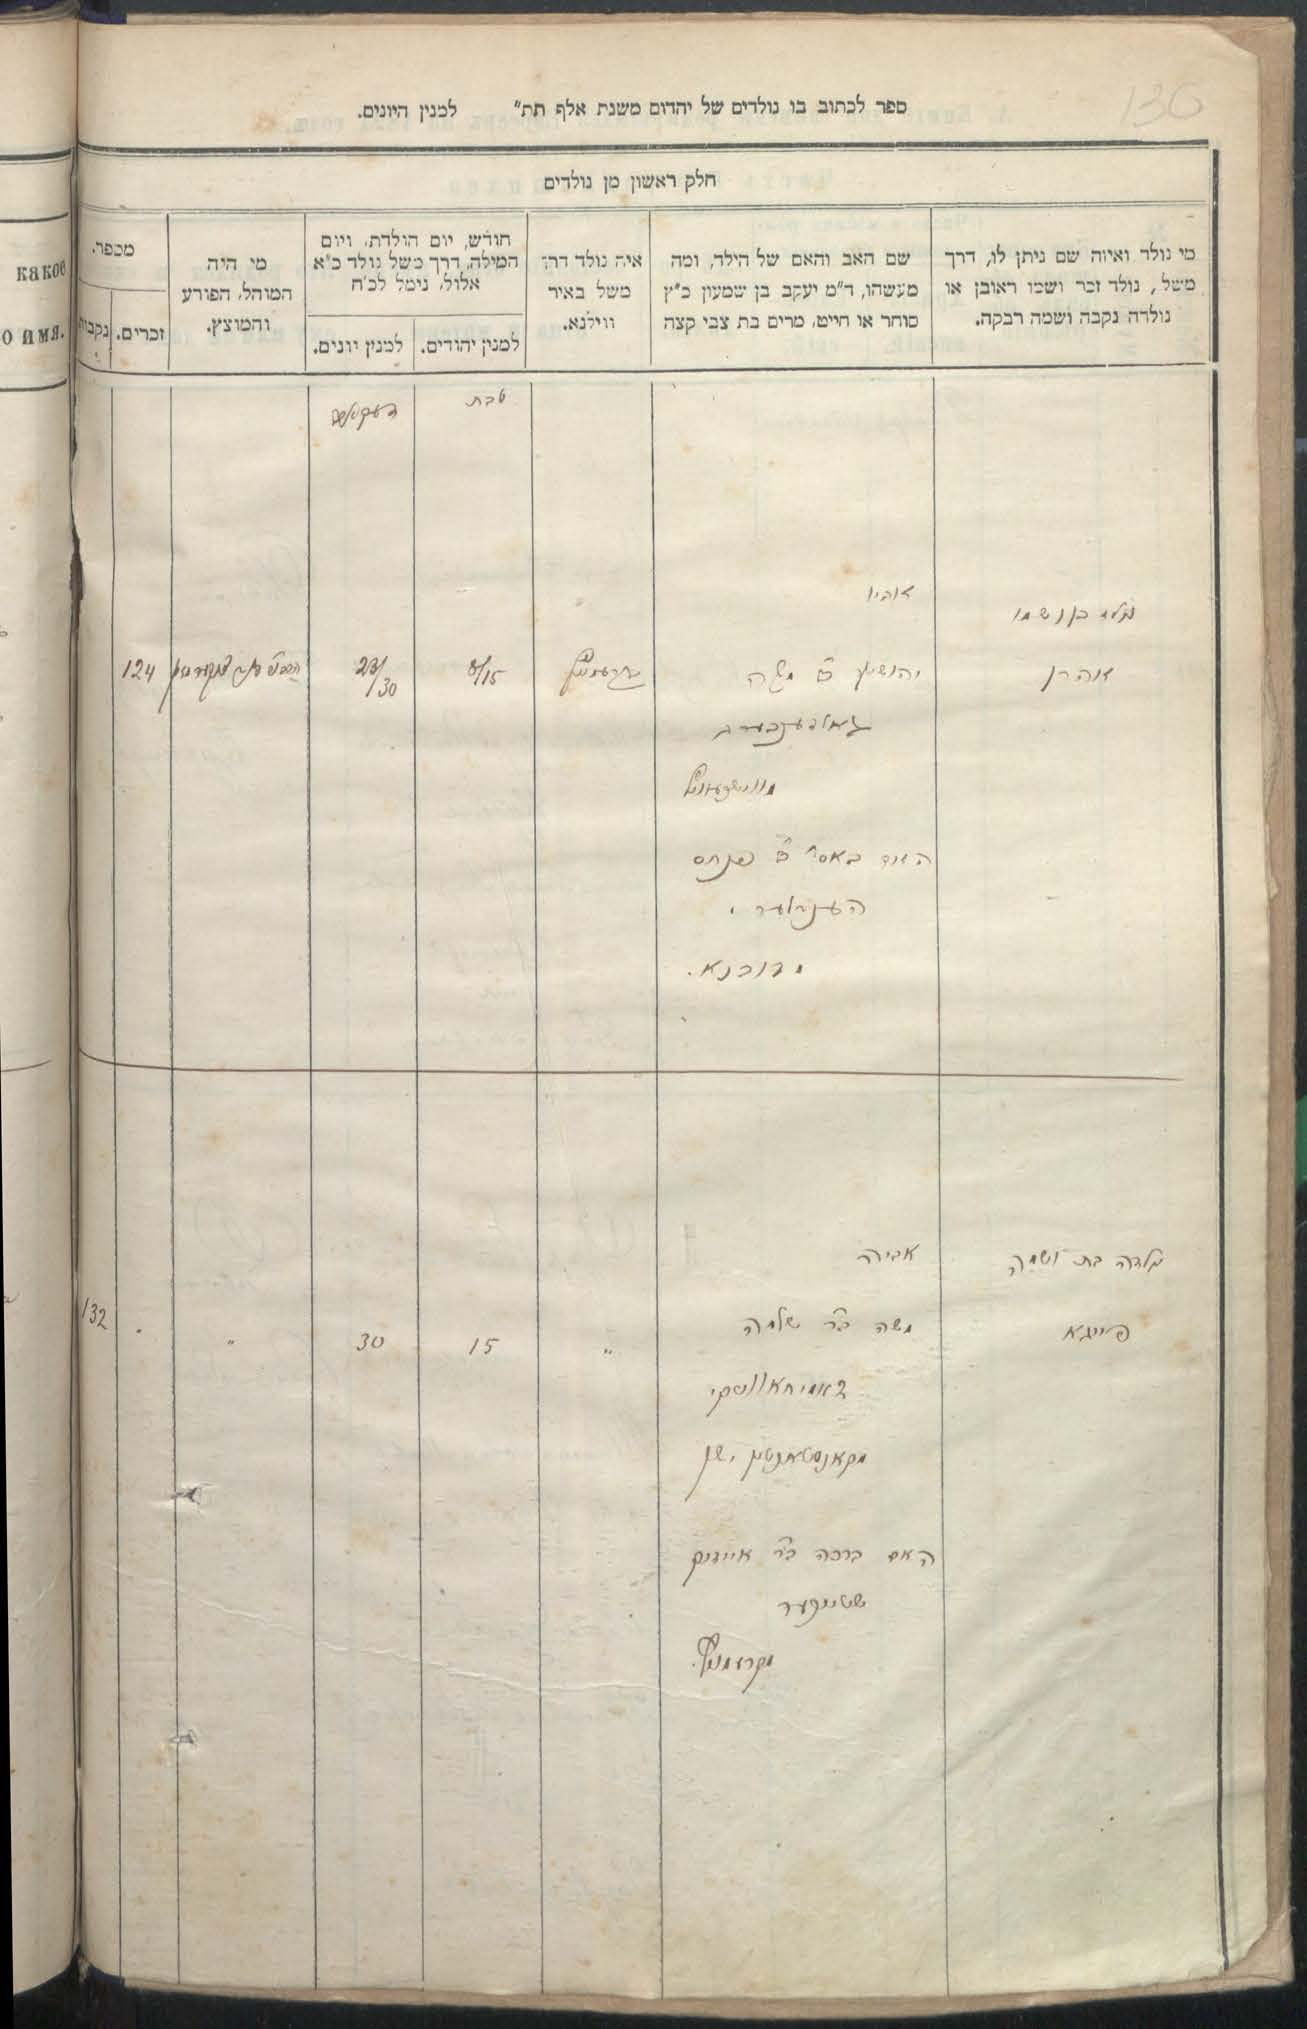 130
ספר לכתוב בו נולדים של יהדום משנת אלף תת״ למנין היונים.
חלק ראשון מן נולדים
מי נולד ואיזה שם ניתן לו, דרך
משל, נולד זכר ושמו ראובן או
נולדה נקבה ושמה רבקה.
שם האב והאם של הילד, ומה
מעשהו, ד״מ יעקב בן שמעון כ״ץ
סוחר או חייט, מרים בת צבי קצה
איה נולד דרך
משל באיר
ווילנא.
חודש, יום הולדת, ויום
המילה, דרך משל נולד כ״א
אלול, נימל לכ״ח
למנין יהודים.
למנין יונים.
מי היה
המוהל, הפורע
והמוצץ.
מספר.
זכרים.
נקבות
какое
о имя.
טבת
דעקאבר
נולד בן ושמו
אהרן
אביו
יהושע ב״ר משה
גאלדענבערג
האם באסי ב״ר פנחס
מדובנא.
8/15
23/30
124
נולדה בת ושמה
פייגא
אביה
משה ב״ר שלמה
מקאנסטאנטין ישן
האם ברכה ב״ר אייזיק
מקרעמניץ.
״
15
30
״
״
132